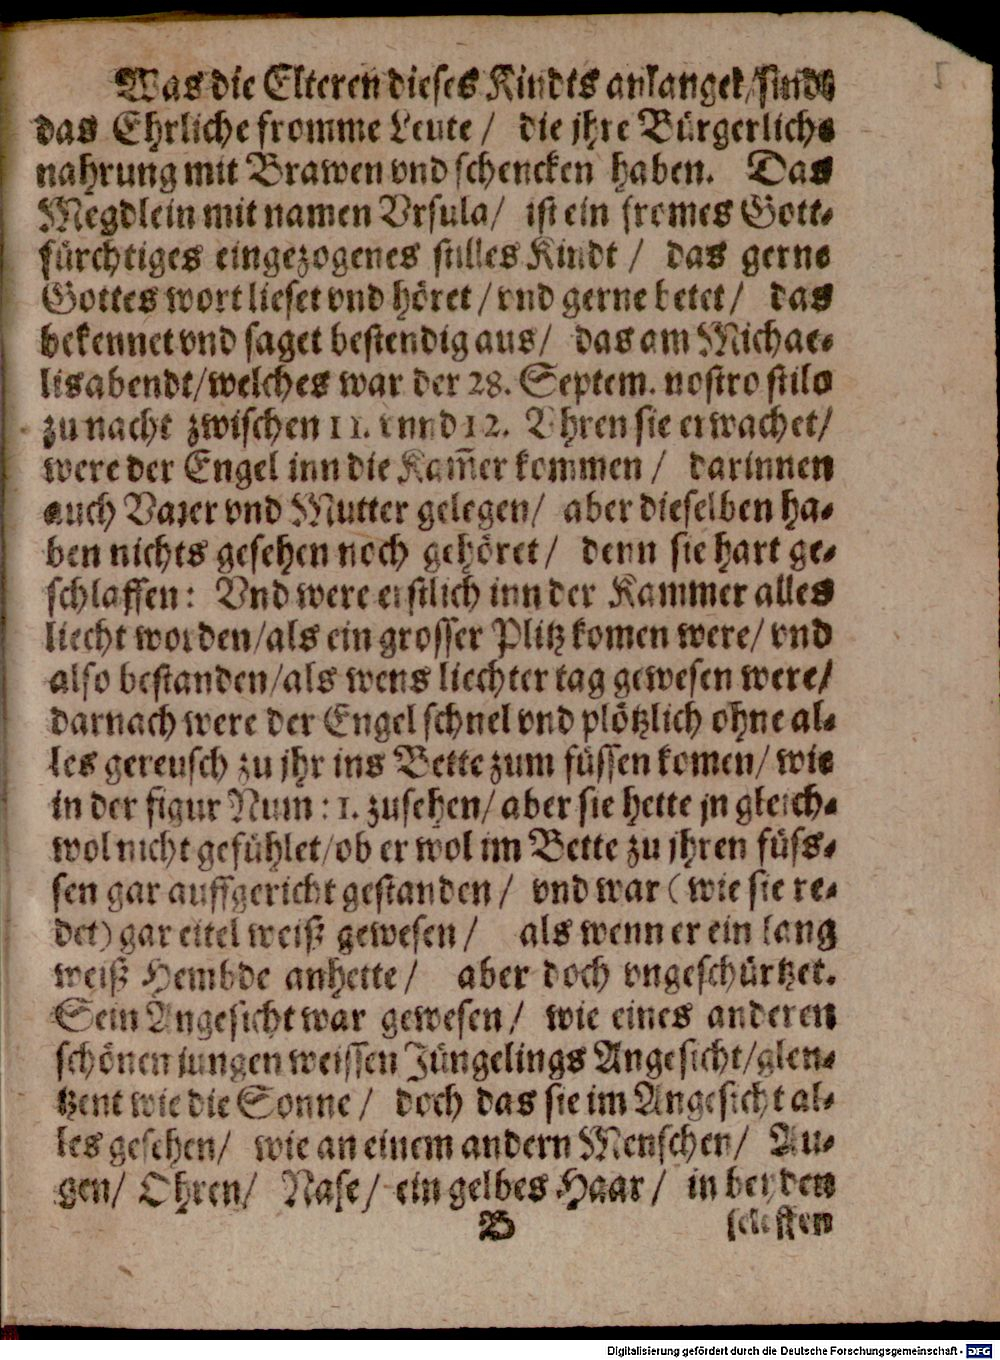 Was die Elteren dieses Kindts anlanget / sinds
das Ehrliche fromme Leute / die jhre Bürgerliche
nahrung mit Brawen vnd schencken haben. Das
Megdlein mit namen Vrsula / ist ein fromes Gott-
fürchtiges eingezogenes stilles Kindt / das gerne
Gottes wort lieset vnd höret / vnd gerne betet / das
bekennet vnd saget bestendig aus / das am Michae-
lis abendt / welches war der 28. Septem. nostro stilo
zu nacht zwischen 11. vnnd 12. Vhren sie erwachet /
were der Engel inn die Kam̄er kommen / darinnen
auch Vater vnd Mutter gelegen / aber dieselben ha-
ben nichts gesehen noch gehöret / denn sie hart ge-
schlaffen: Vnd were erstlich inn der Kammer alles
liecht worden / als ein grosser Plitz komen were / vnd
also bestanden / als wens liechter tag gewesen were /
darnach were der Engel schnel vnd plötzlich ohne al-
les gereusch zu jhr ins Bette zum füssen komen / wie
in der figur Num: 1. zusehen / aber sie hette jn gleich-
wol nicht gefühlet / ob er wol im Bette zu jhren füss-
sen gar auffgericht gestanden / vnd war (wie sie re-
det) gar eitel weiß gewesen / als wenn er ein lang
weiß Hembde anhette / aber doch vngeschürtzet.
Sein Angesicht war gewesen / wie eines anderen
schönen jungen weissen Jüngelings Angesicht / glen-
tzent wie die Sonne / doch das sie im Angesicht al-
les gesehen / wie an einem andern Menschen / Au-
gen / Ohren / Nase / ein gelbes Haar / in beyden
B
Digitalisierung gefördert durch die Deutsche Forschungsgemeinschaft - DFG